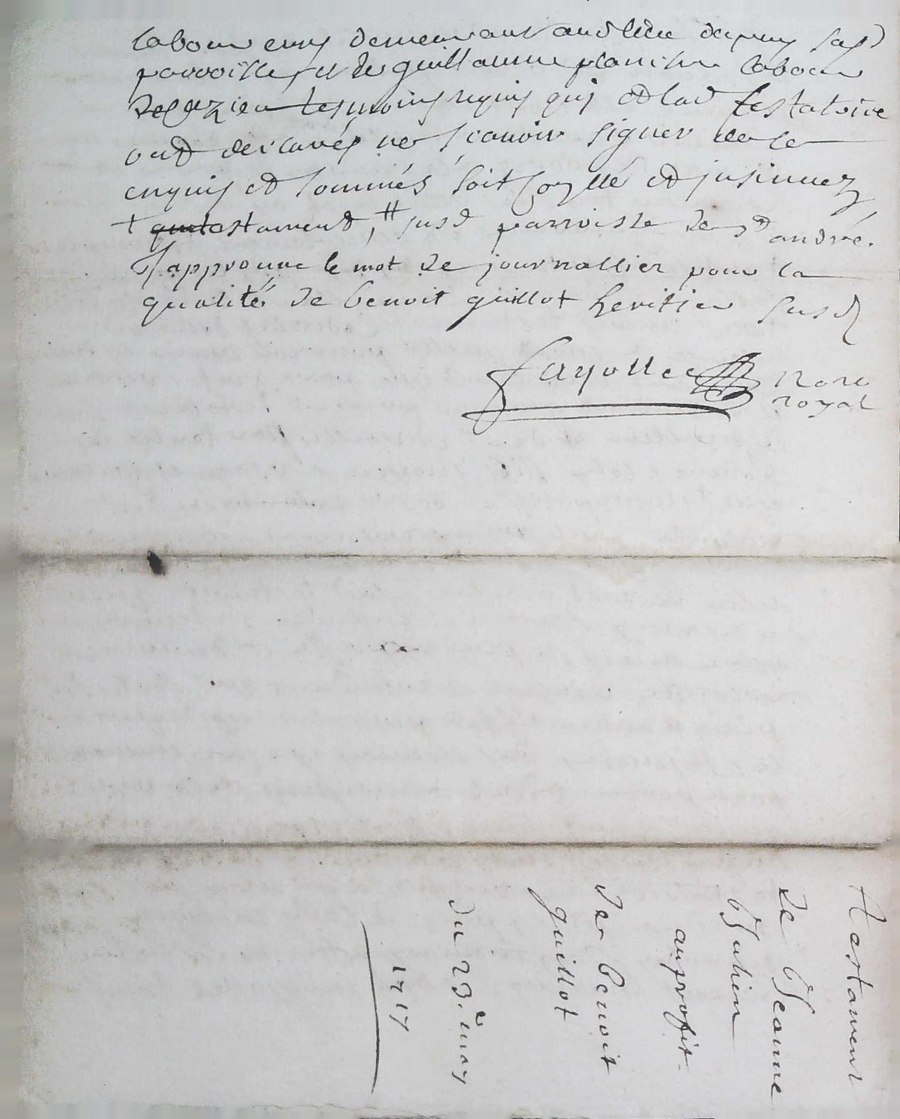 laboureurs demeurant audlieu
parroisse et de guillaume planche labour
tesmoins requis qui et lad testatrice
ont declarés ne scavoir signer de ce
enquis et sommés soit scellé et insinuez
testament, # susd parroisse de St andré.
J'approuve le mot de journallier pour la
qualité de benoit guillot heritier susd
fayolle nore
royal
Testament
de Jeanne
Jullien
au proffit
de benoit
guillot
du 23e may
1717